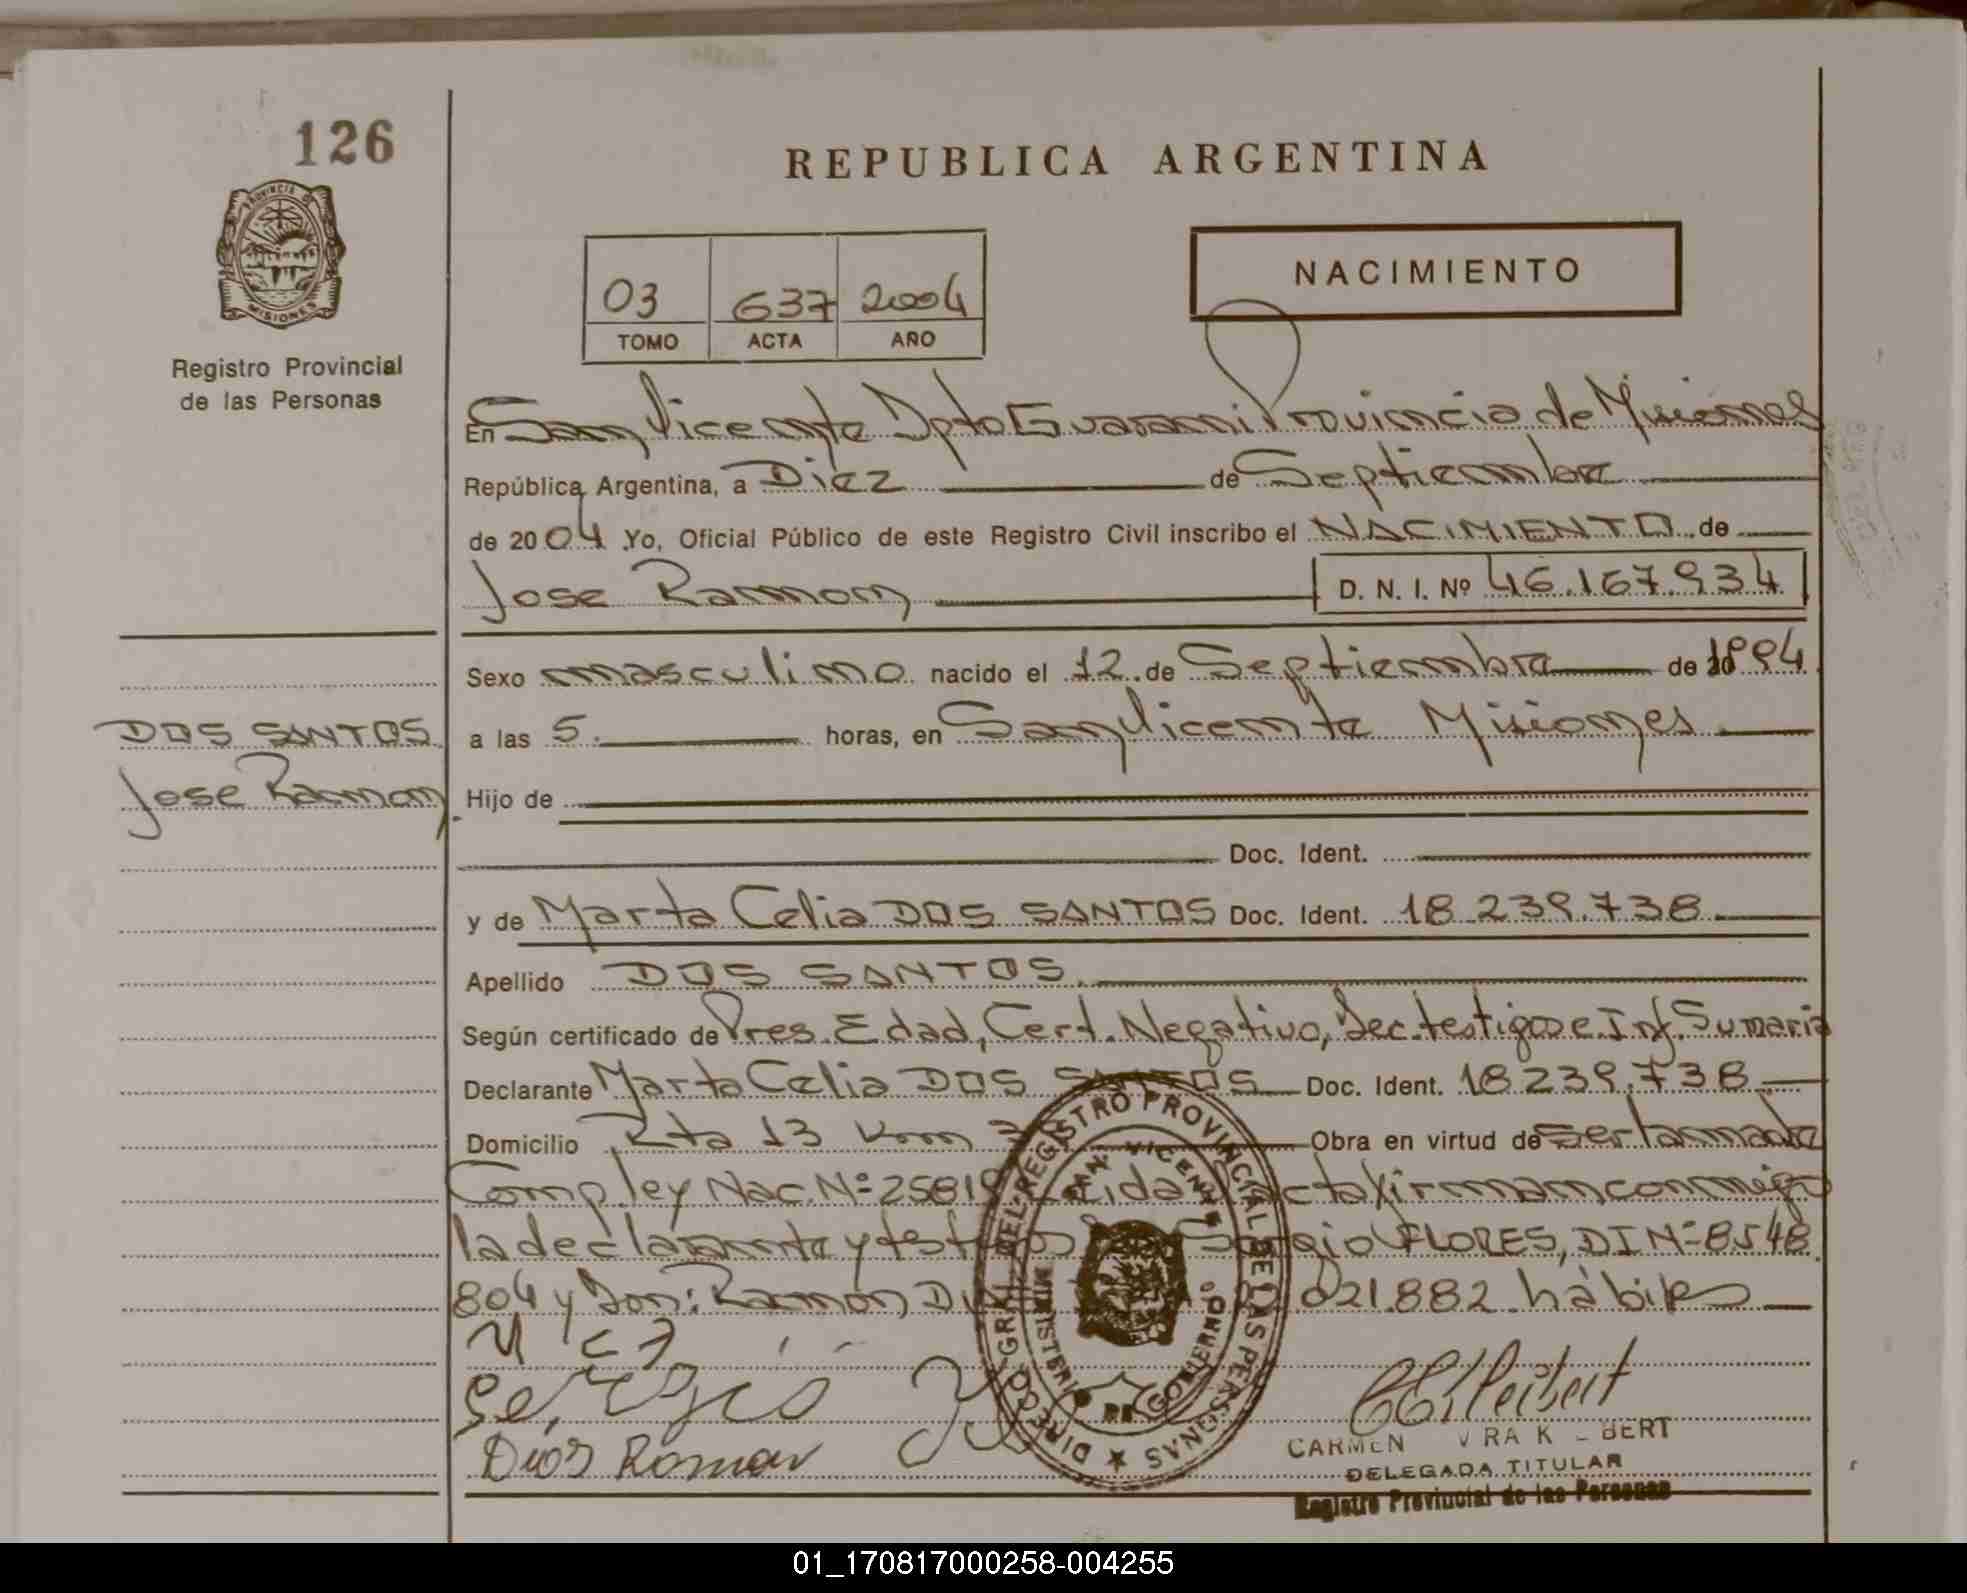 126
REPUBLICA ARGENTINA
PROVINCIA DE
MISIONES
Registro Provincial
de las Personas
03 637 2004
TOMO ACTA AÑO
NACIMIENTO
En San Vicente Dpto Guarani Provincia de Misiones
República Argentina, a Diez de Septiembre
de 2004 Yo, Oficial Público de este Registro Civil inscribo el NACIMIENTO de
Jose Ramon D. N. I. Nº 46.167.934
Sexo masculino nacido el 12 de Septiembre de 1994
DOS SANTOS
Jose Ramon
a las 5 horas, en San Vicente Misiones
Hijo de
Doc. Ident.
y de Marta Celia DOS SANTOS Doc. Ident. 18.239.738
Apellido DOS SANTOS
Según certificado de Pres. Edad, Cert. Negativo, Dec. testigos e Inf. Sumaria
Declarante Marta Celia DOS SANTOS Doc. Ident. 18239.738
Domicilio Rta 13 Km Obra en virtud de ser tomada
Comp. ley Nac. Nº 25819 Leida acta firman conmigo
la declarante y testigos Sergio FLORES, DI Nº 8548
804 y Don: Ramon 021.882 hábiles
Sergio
Ramon
DIRECC. GRAL. DEL REGISTRO PROVINCIAL DE LAS PERSONAS
SAN VICENTE
MINISTERIO DE GOBIERNO
CARMEN
DELEGADA TITULAR
Registro Provincial de las Personas
01_170817000258-004255